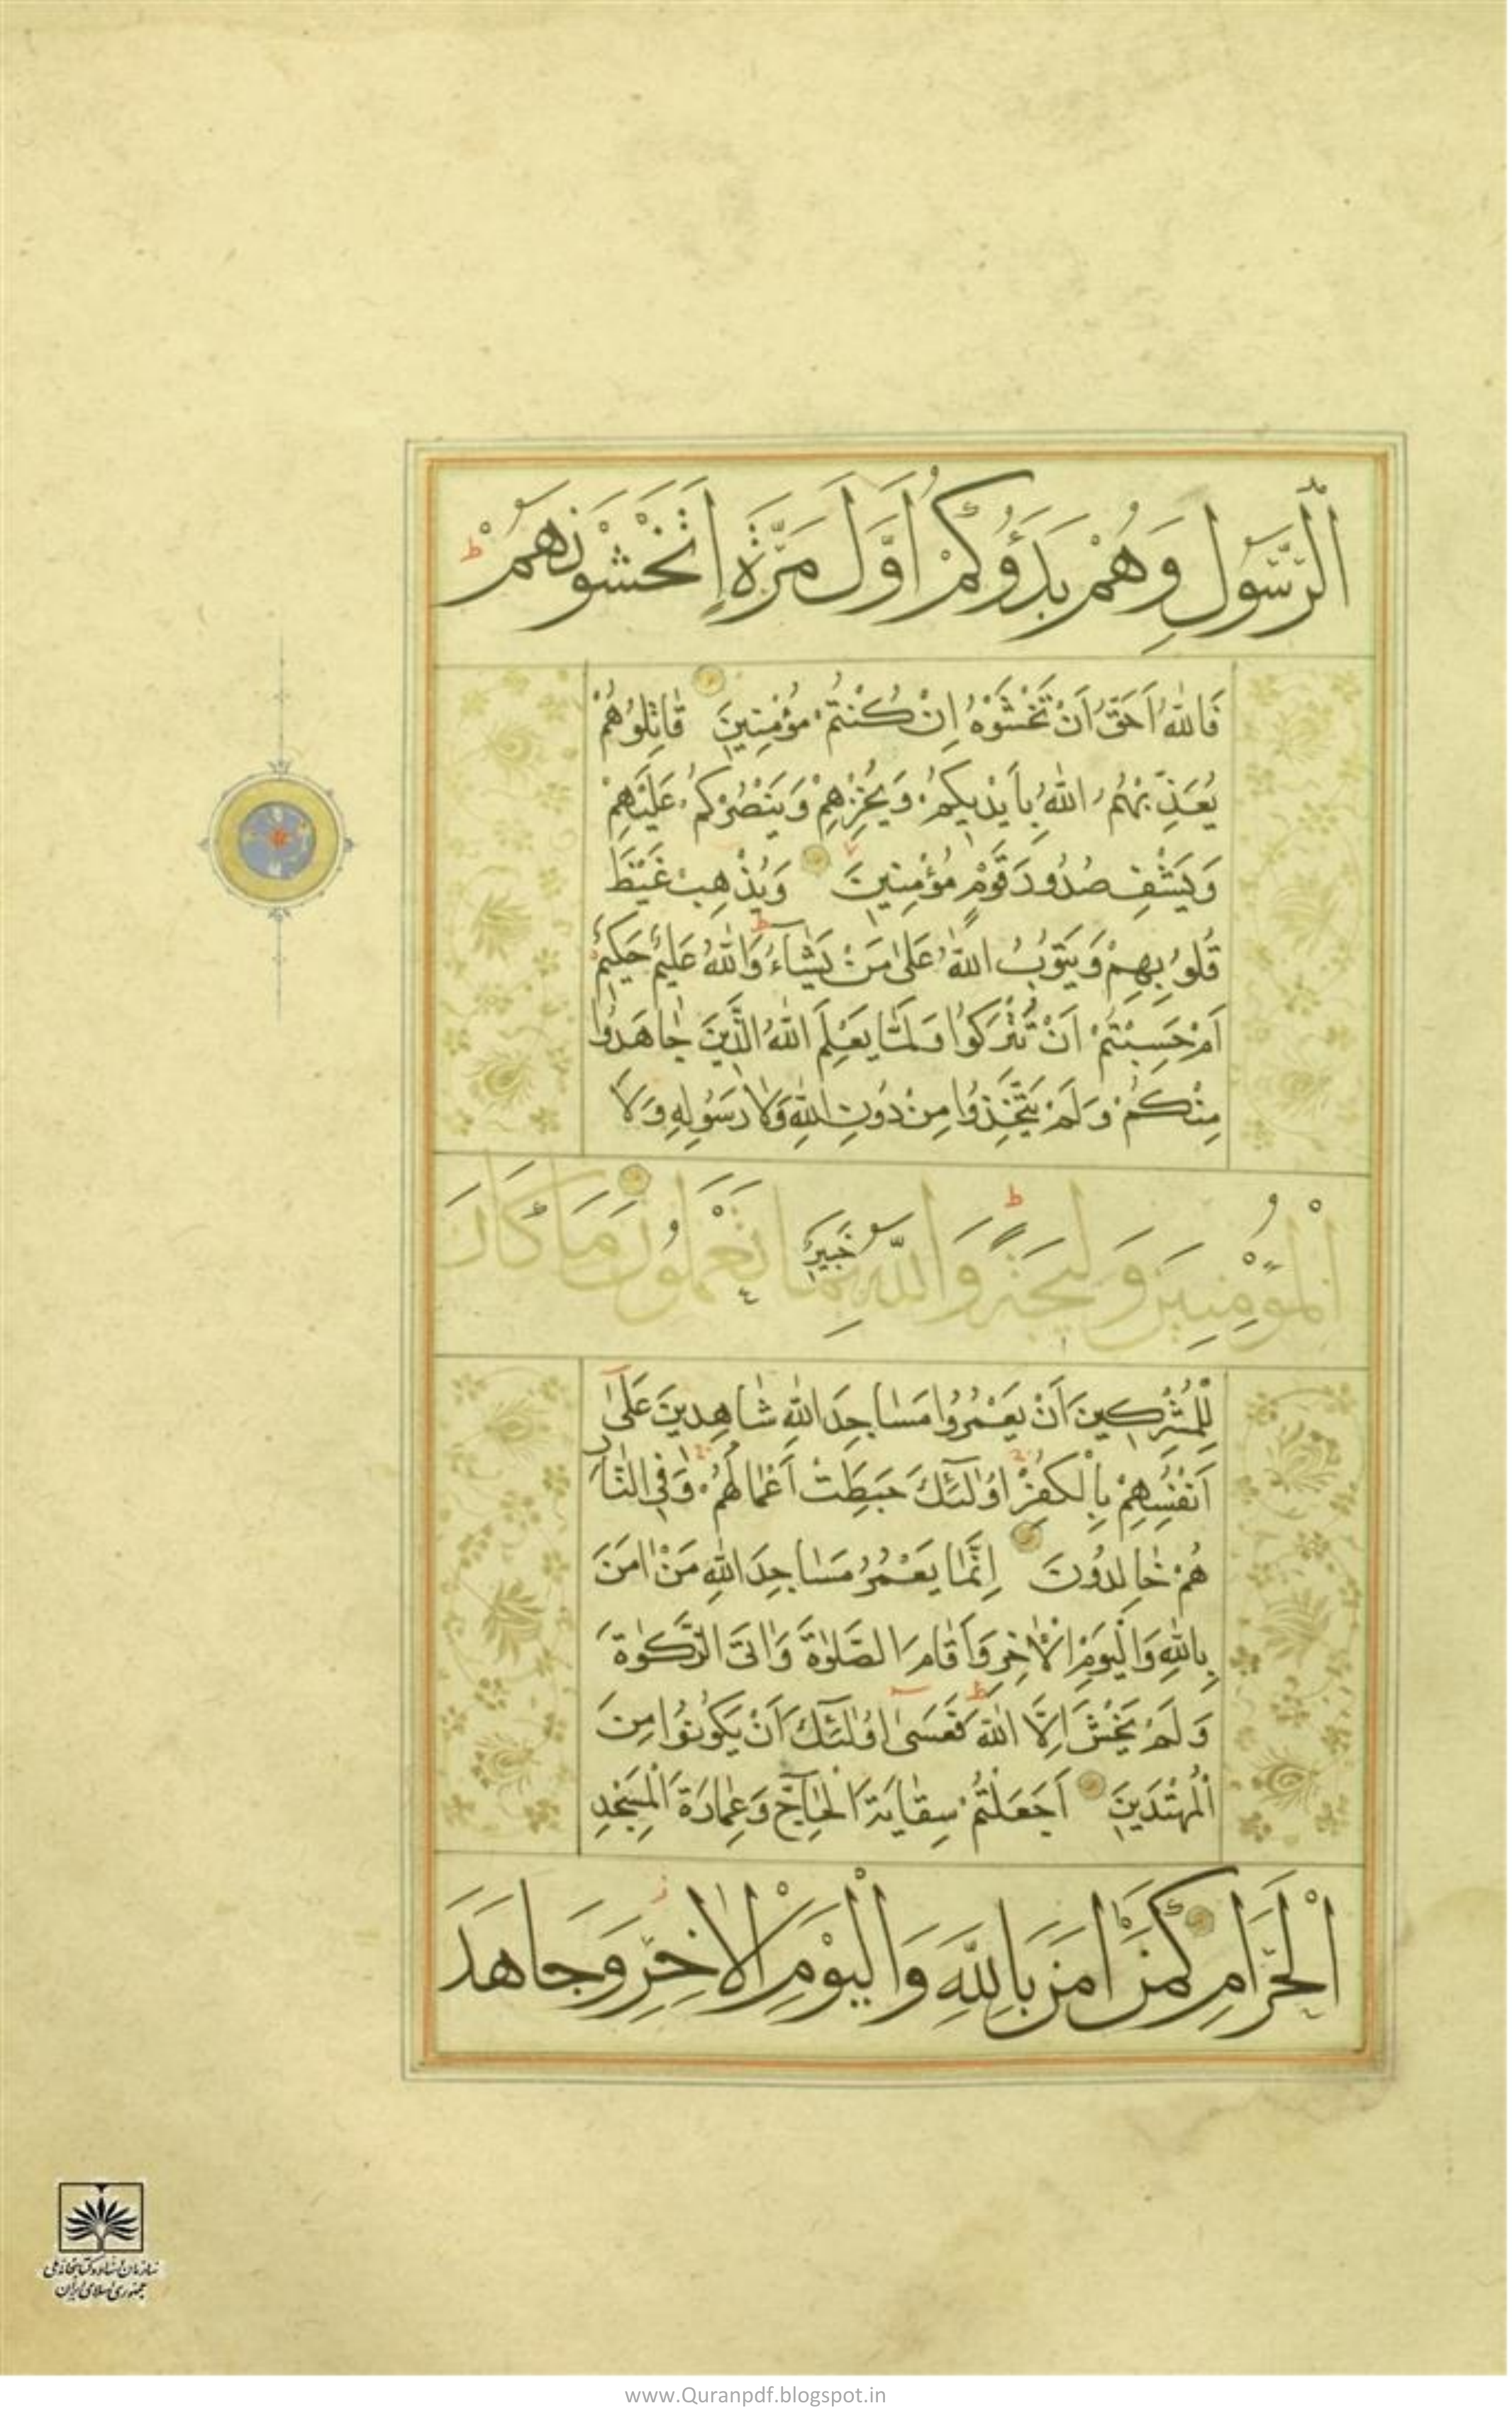 اَلرَّسُولِ وَهُمْ بَدَؤُكُمْ اَوَّلَ مَرَّةٍ اَتَخْشَوْنَهُمْ ط
فَاللّٰهُ اَحَقُّ اَنْ تَخْشَوْهُ اِنْ كُنْتُمْ مُؤْمِنِينَ قَاتِلُوهُمْ
يُعَذِّبْهُمُ اللّٰهُ بِاَيْدِيكُمْ وَيُخْزِهِمْ وَيَنْصُرْكُمْ عَلَيْهِمْ
وَيَشْفِ صُدُورَ قَوْمٍ مُؤْمِنِينَ وَيُذْهِبْ غَيْظَ
قُلُوبِهِمْ وَيَتُوبُ اللّٰهُ عَلٰى مَنْ يَشَآءُ ط وَاللّٰهُ عَلِيمٌ حَكِيمٌ
اَمْ حَسِبْتُمْ اَنْ تُتْرَكُوا وَلَمَّا يَعْلَمِ اللّٰهُ الَّذِينَ جَاهَدُوا
مِنْكُمْ وَلَمْ يَتَّخِذُوا مِنْ دُونِ اللّٰهِ وَلَا رَسُولِهِ وَلَا
الْمُؤْمِنِينَ وَلِيجَةً ط وَاللّٰهُ خَبِيرٌ بِمَا تَعْمَلُونَ مَا كَانَ
لِلْمُشْرِكِينَ اَنْ يَعْمُرُوا مَسَاجِدَ اللّٰهِ شَاهِدِينَ عَلٰى
اَنْفُسِهِمْ بِالْكُفْرِ اُولٰئِكَ حَبِطَتْ اَعْمَالُهُمْ وَفِي النَّارِ
هُمْ خَالِدُونَ اِنَّمَا يَعْمُرُ مَسَاجِدَ اللّٰهِ مَنْ اٰمَنَ
بِاللّٰهِ وَالْيَوْمِ الْاٰخِرِ وَاَقَامَ الصَّلٰوةَ وَاٰتَى الزَّكٰوةَ
وَلَمْ يَخْشَ اِلَّا اللّٰهَ ط فَعَسٰى اُولٰئِكَ اَنْ يَكُونُوا مِنَ
الْمُهْتَدِينَ اَجَعَلْتُمْ سِقَايَةَ الْحَاجِّ وَعِمَارَةَ الْمَسْجِدِ
الْحَرَامِ كَمَنْ اٰمَنَ بِاللّٰهِ وَالْيَوْمِ الْاٰخِرِ وَجَاهَدَ
سازمان اسناد و کتابخانه ملی
جمهوری اسلامی ایران
www.Quranpdf.blogspot.in